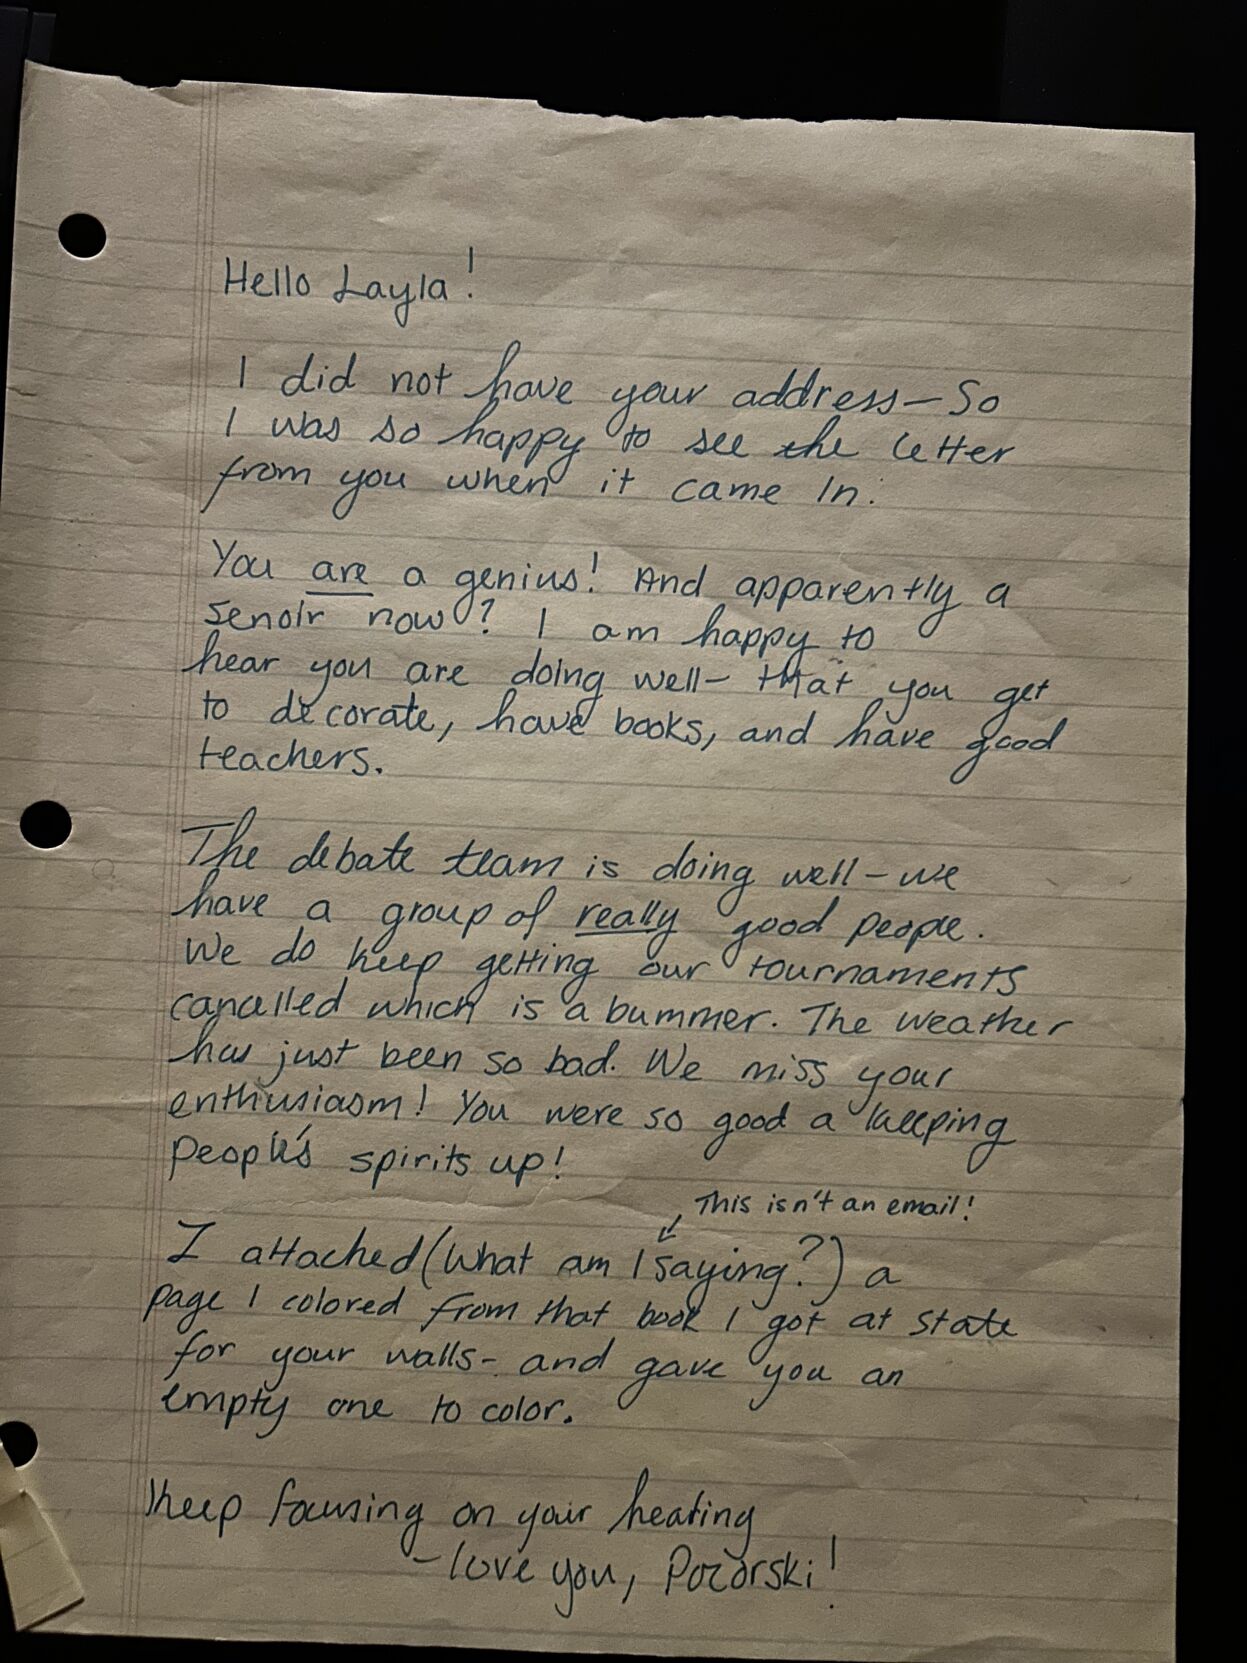 Hello Layla!
I did not have your address—So
I was so happy to see the letter
from you when it came In.
You are a genius! And apparently a
senoir now? I am happy to
hear you are doing well- that you get
to decorate, have books, and have good
teachers.
The debate team is doing well-we
have a group of really good people.
We do keep getting our tournaments
cancelled which is a bummer. The weather
has just been so bad. We miss your
enthusiasm! You were so good a keeping
people's spirits up!
This isn't an email!
I attached (What am I saying?) a
page I colored from that book I got at state
for your walls- and gave you an
empty one to color.
Keep focusing on your healing
-love you, Pozorski!